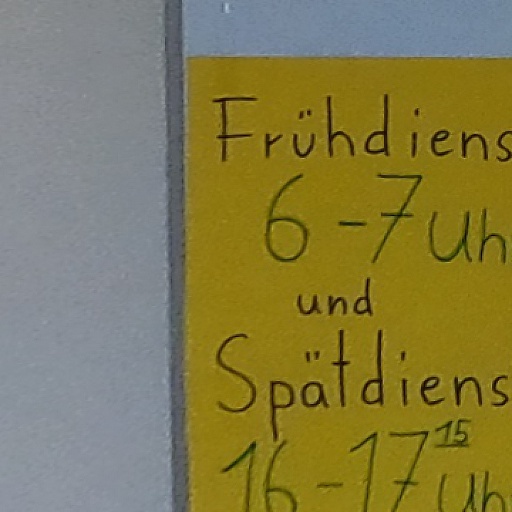 Frühdiens
6 - 7 Uh
und
Spätdiens
16 - 17 15 Uh